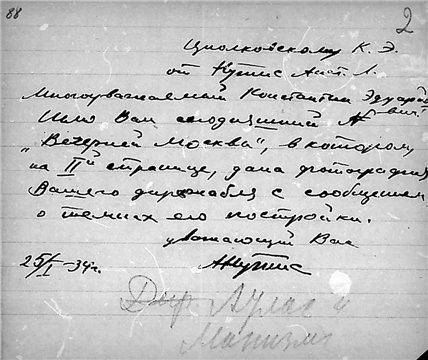 88
2
Циолковскому К. Э.
от Кутис Ант. Л.
Многоуважаемый Константин Эдуардович
Шлю Вам сегодняшний №
"Вечерней Москвы", в котором,
на IIй странице, дана фотография
Вашего дирижабля с сообщением
о темпах его постройки.
уважающий Вас
25/I -34г.